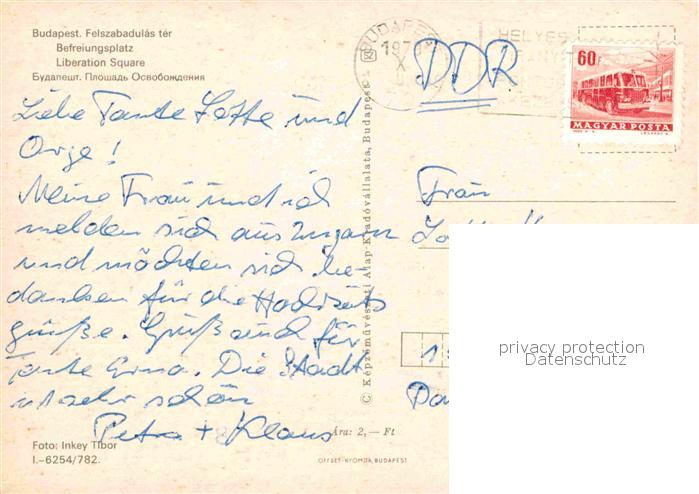 Budapest. Felszabadulás tér
Befreiungsplatz
Liberation Square
Будапешт. Площадь Освобождения
BUDAPEST
1970
X
HELYES
DDR
60f
MAGYAR POSTA
Liebe Tante Lotte und
Meine Frau und ich
melden sich aus Ungarn
und möchten sich be-
danken für die Hochzeits
grüße. Gruß auch für
Tante Erna. Die Stadt
ist sehr schön
Petra + Klaus
Frau
© Képzőművészeti Alap Kiadóvállalata, Budapest
privacy protection
Datenschutz
Foto: Inkey Tibor
I.-6254/782.
Ára: 2,— Ft
OFFSET-NYOMDA, BUDAPEST